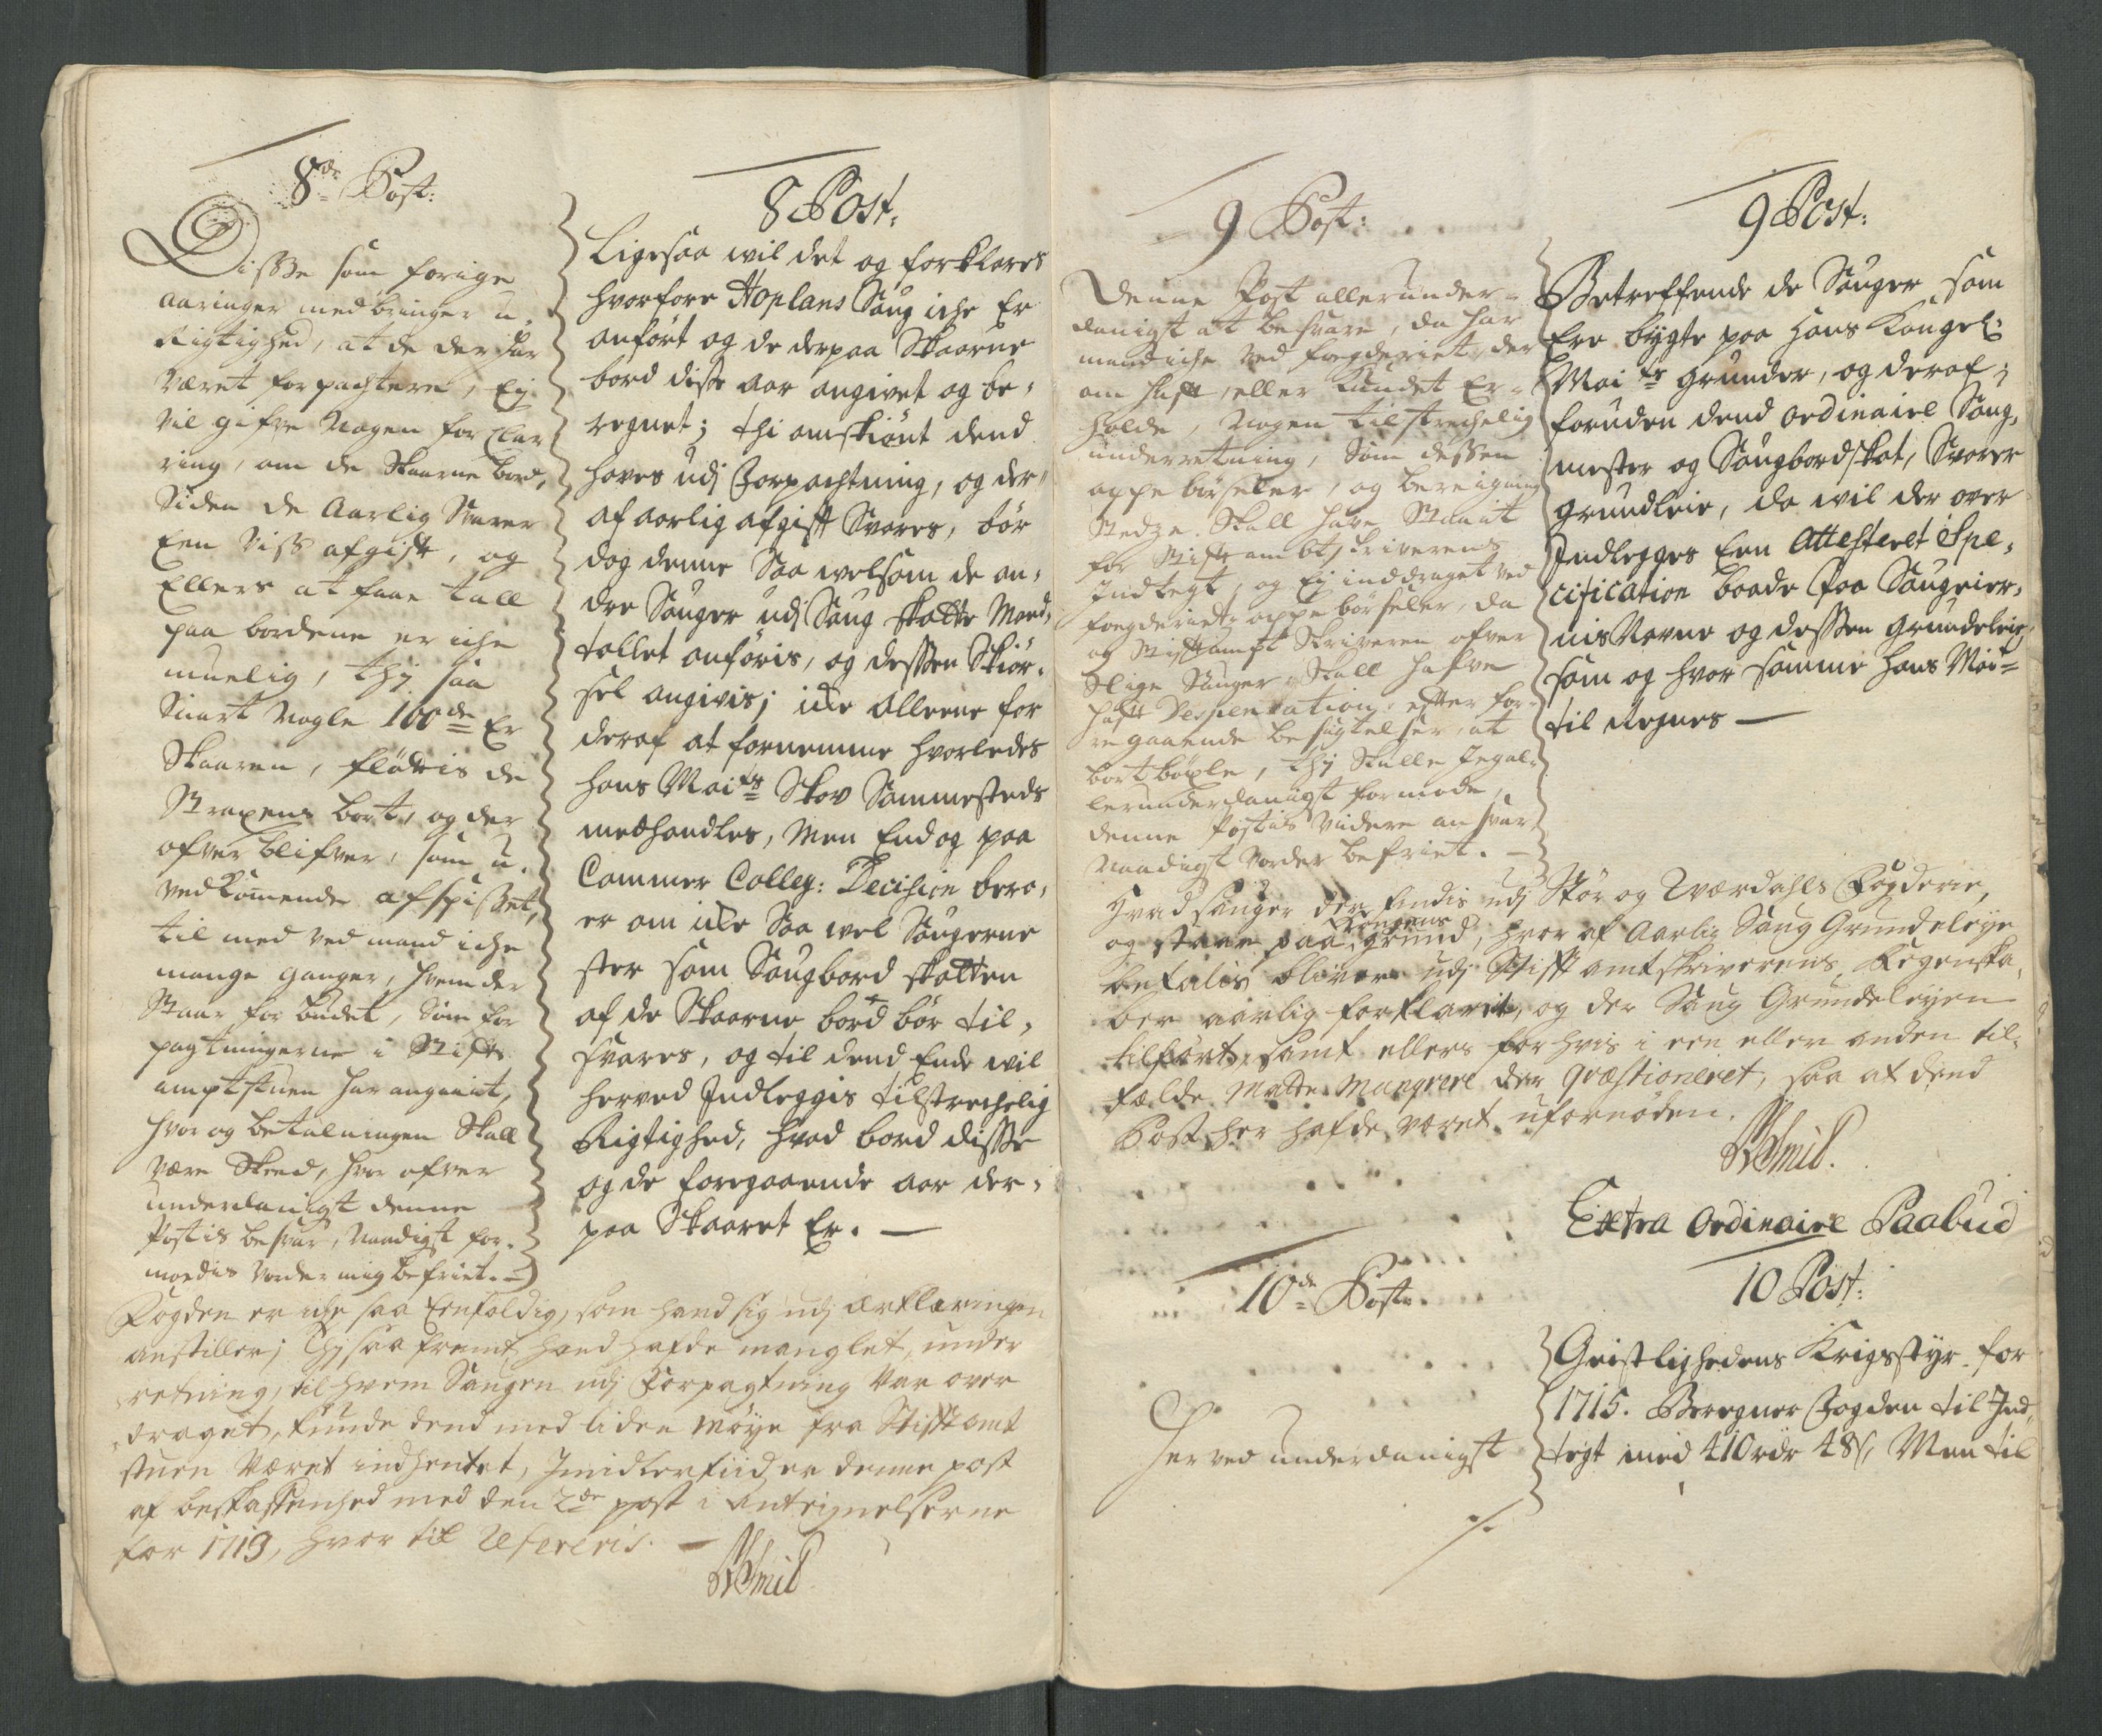 8de Post:
Disse som forige
aaringer medbringer u-
Rigtighed, at de der har
været forpachtere, Ej
vil gifve Nogen forClar
ring, om de Skaarne bord,
Siden de Aarlig Svarer
Een Viss afgift, og
Ellers at faae tall
paa bordene er iche
muelig, thj saa
Snart Nogle 100de Er
Skaaren, flöttis de
Straxens bort, og der
ofver blifver, som u-
vedkommende afspisset,
til med ved mand iche
mange ganger, hvem der
Staar for budet, Som for
pagtningerne i Stifts
amptstuen har angivit,
hvor og betalningen Skall
være Skeed, hvor ofver
underdanigt denne
Postis besvar, Naadigst for-
modis vorder mig befriet. -
8 Post.
Ligesaa wil det og forklares
hvorfore Hoplans Saug iche Er
anfört og de derpaa Skaarne
bord disse aar angivet og be-
regnet; thi omskiönt dend
haves udj Forpachtning, og der-
af aarlig afgift Svares, bör
dog denne Saa welsom de an-
dre Sauger udj Saug skatte Mand-
tallet anföris, og dessen Skiör-
sel angivis; icke alleene for
deraf at fornemme hvorledes
hans Maits Skov Sammesteds
medhandles, Men End og paa
Cammer Colleg: Decision bero-
er om icke Saa wel Saugerne
ster som Saugbord skatten
af de Skaarne bord bör til-
svares, og til dend Ende wil
herved Indleggis tilstrechelig
Rigtighed, hvad bord disse
og de foregaaende aar der-
paa Skaaret Er. —
Fogden er iche saa Eenfoldig, som hand sig udj Erklæringen
anstiller; Thj saa fremt hand hafde manglet, under
retning, til hvem Saugen udj Forpagtning var over
draget, kunde dend med liden Möye fra Stifft amt
stuen været indhentet, Imidlertiid er denne post
af beskaffenhed med den 2de post i Antegnelserne
for 1713, hvor til Refereris. —
Smid
9 Post:
Denne Post allerunder-
danigst at besvare, da har
mand iche ved fogderiet der
om hafft, eller kundet Er-
holde, Nogen tilstrechelig
underretning, Som dessen
oppebörseler, og beregning
Stedze Skall have Staait
for Stiftambtskriverens
Indtegt, og Ej inddraget ved
fogderiets oppebörseler, da
og Stiftampt Skriveren ofver
Slige Sauger Skall hafve
hafft Despensation, efter for-
regaaende besigtelser, at
bortböxle, thj Skulle Jeg al-
lerunderdanigst formode,
denne Postis Videre ansvar
Naadigst vorder befriet. —
9 Post:
Betreffende de Sauger som
Ere bÿgte paa Hans Kongel:
Maits Grunder, og deraf,
foruden dend ordinaire Saug-
mester og Saugbordskat, Svarer
grundleie, da wil der over
Indlegges Een Attesteret Spe-
cification baade paa Saugeier-
nis Navne og dessen Grundeleie,
som og hvor samme hans Mait
til Regnes —
Hvad sauger der findis udj Stör og Værdahls Fögderie,
og staar paa Kongens grund, hvor af Aarlig Saug Grundeleÿe
betalis bliver udj Stifft amtskriverens Regenska-
ber aarlig forklarit, og der Saug Grundeleÿen
tilfört, samt ellers for hvis i een eller anden til-
fælde Motte Manqvere der qvæstioneret, saa at dend
Post her hafde været ufornöden.
Smid.
Extra Ordinaire Paabud
10de Post.
Herved underdanigst
10 Post:
Geistlighedens Krigsstÿr for
1715. Beregner Fogden til Ind-
tegt med 410 rdr 48 s, Men til
./.